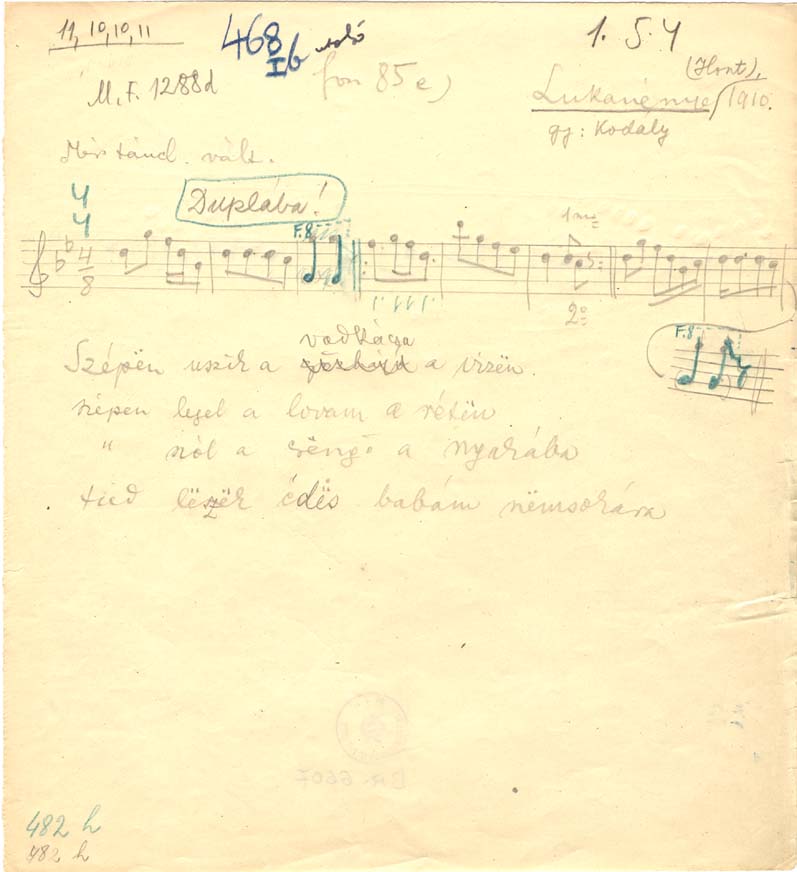 11, 10, 10, 11
468 Ib utó
1. 5. 4
M. F. 1288d
fon 85 e)
(Hont),
Lukanénye 1910.
gy: Kodály
vált.
4
4
Duplába!
4
8
F. 8
1mo
2o
F. 8
vadkácsa
Szépën uszik a a vizën.
szépen legel a lovam a rétën
" szól a csëngő a nyakába
tied lëszëk édës babám nëmsokára
BR. 6607
482 h
482 h